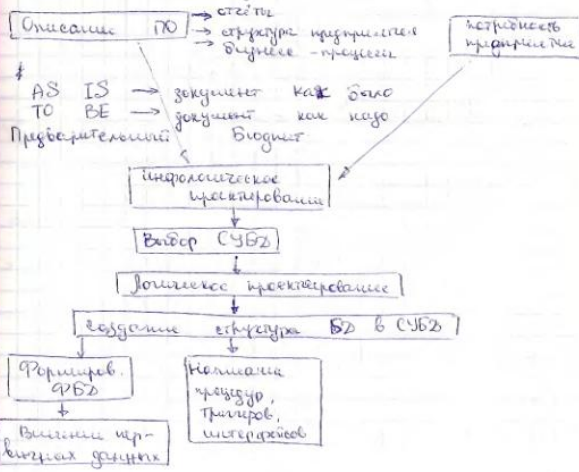 отчёты
Описание ПО
структура предприятия
бизнес-процессы
потребность
предприятия
AS IS → документ как было
TO BE → документ как надо
Предварительный бюджет
инфологическое
проектирование
Выбор СУБД
Логическое проектирование
создание структура БД в СУБД
Формиров.
ФБД
Написание
процедур,
триггеров,
интерфейсов
Внесение пер-
вичных данных